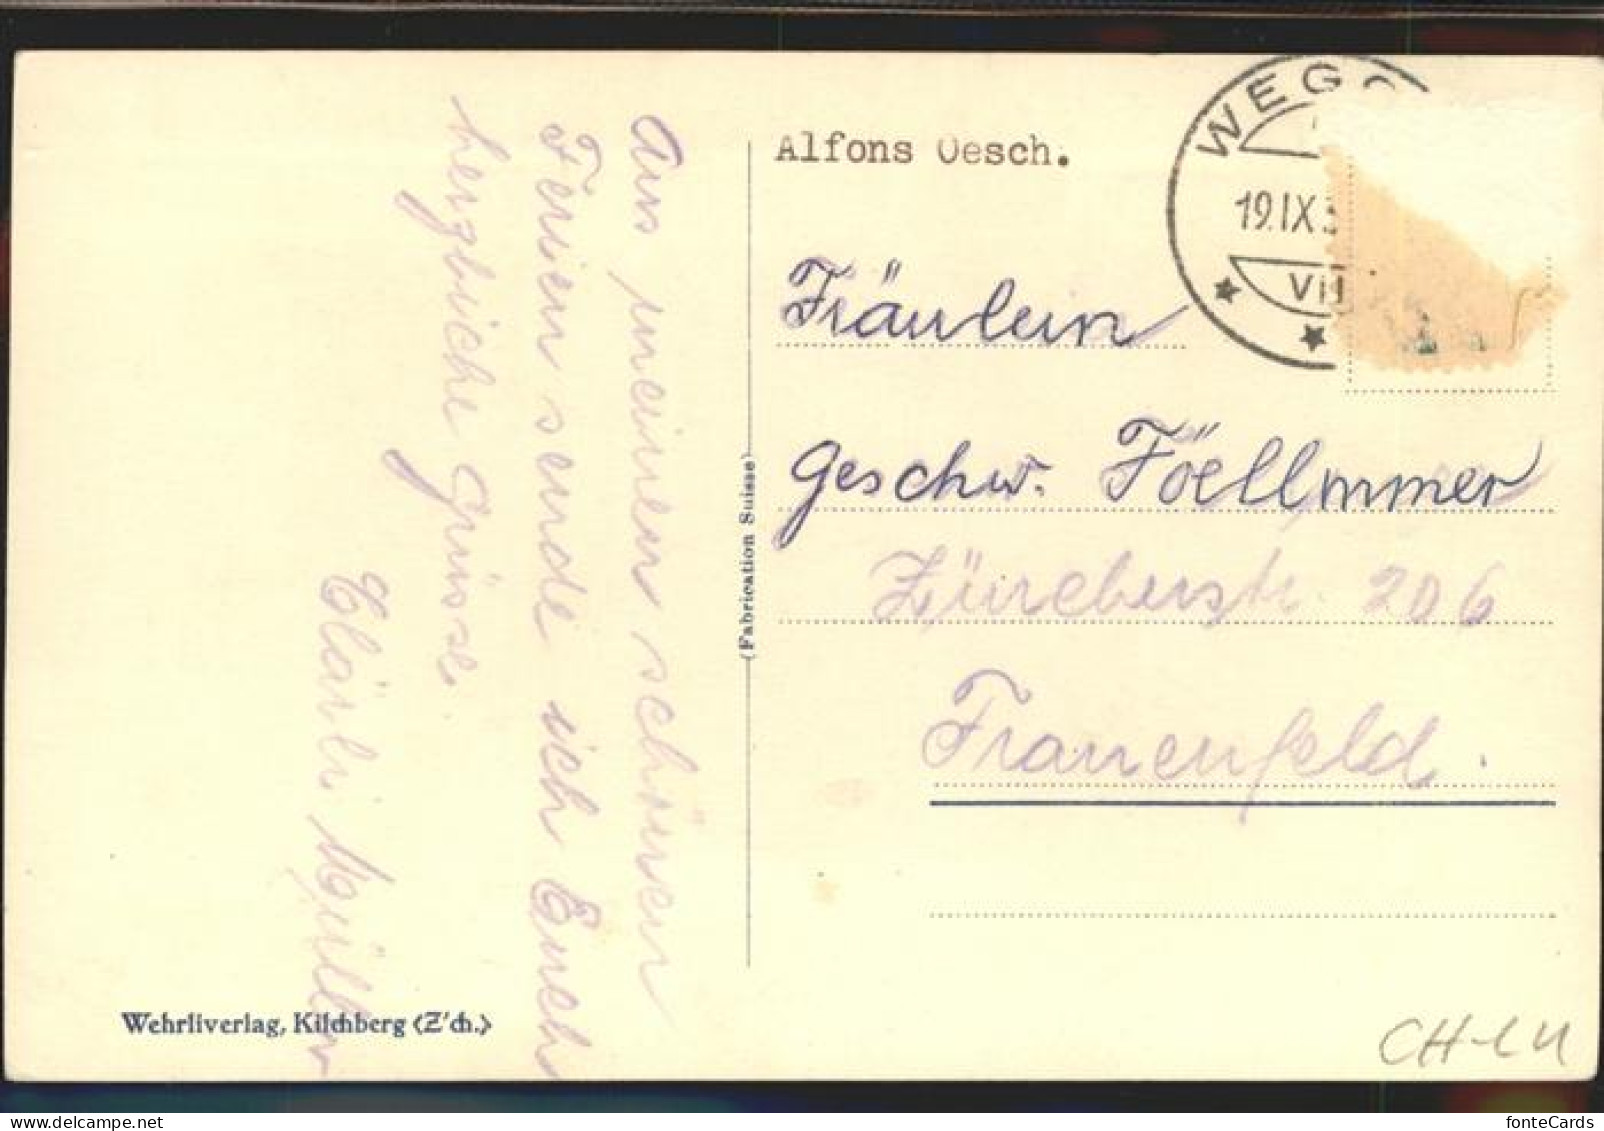 Aus meinen schönen
Ferien sende ich Euch
herzliche Grüsse.
Cläirli Müller
Wehrliverlag, Kilchberg (Z'ch.)
(Fabrication Suisse)
Alfons Oesch.
19.IX.3
VII
Fräulein
Geschw. Föellmmer
Zürcherstr. 206
Frauenfeld.
CH-LU
fonteCards